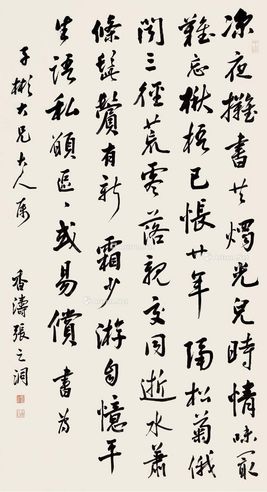 涼夜擁書共燭光兒時情味最
難忘楸梧已悵廿年隔松菊俄
聞三徑荒零落親交同逝水蕭
條髭鬢有新霜少游自憶平
生語私願區區或易償書為
子彬大兄大人属
香濤張之洞